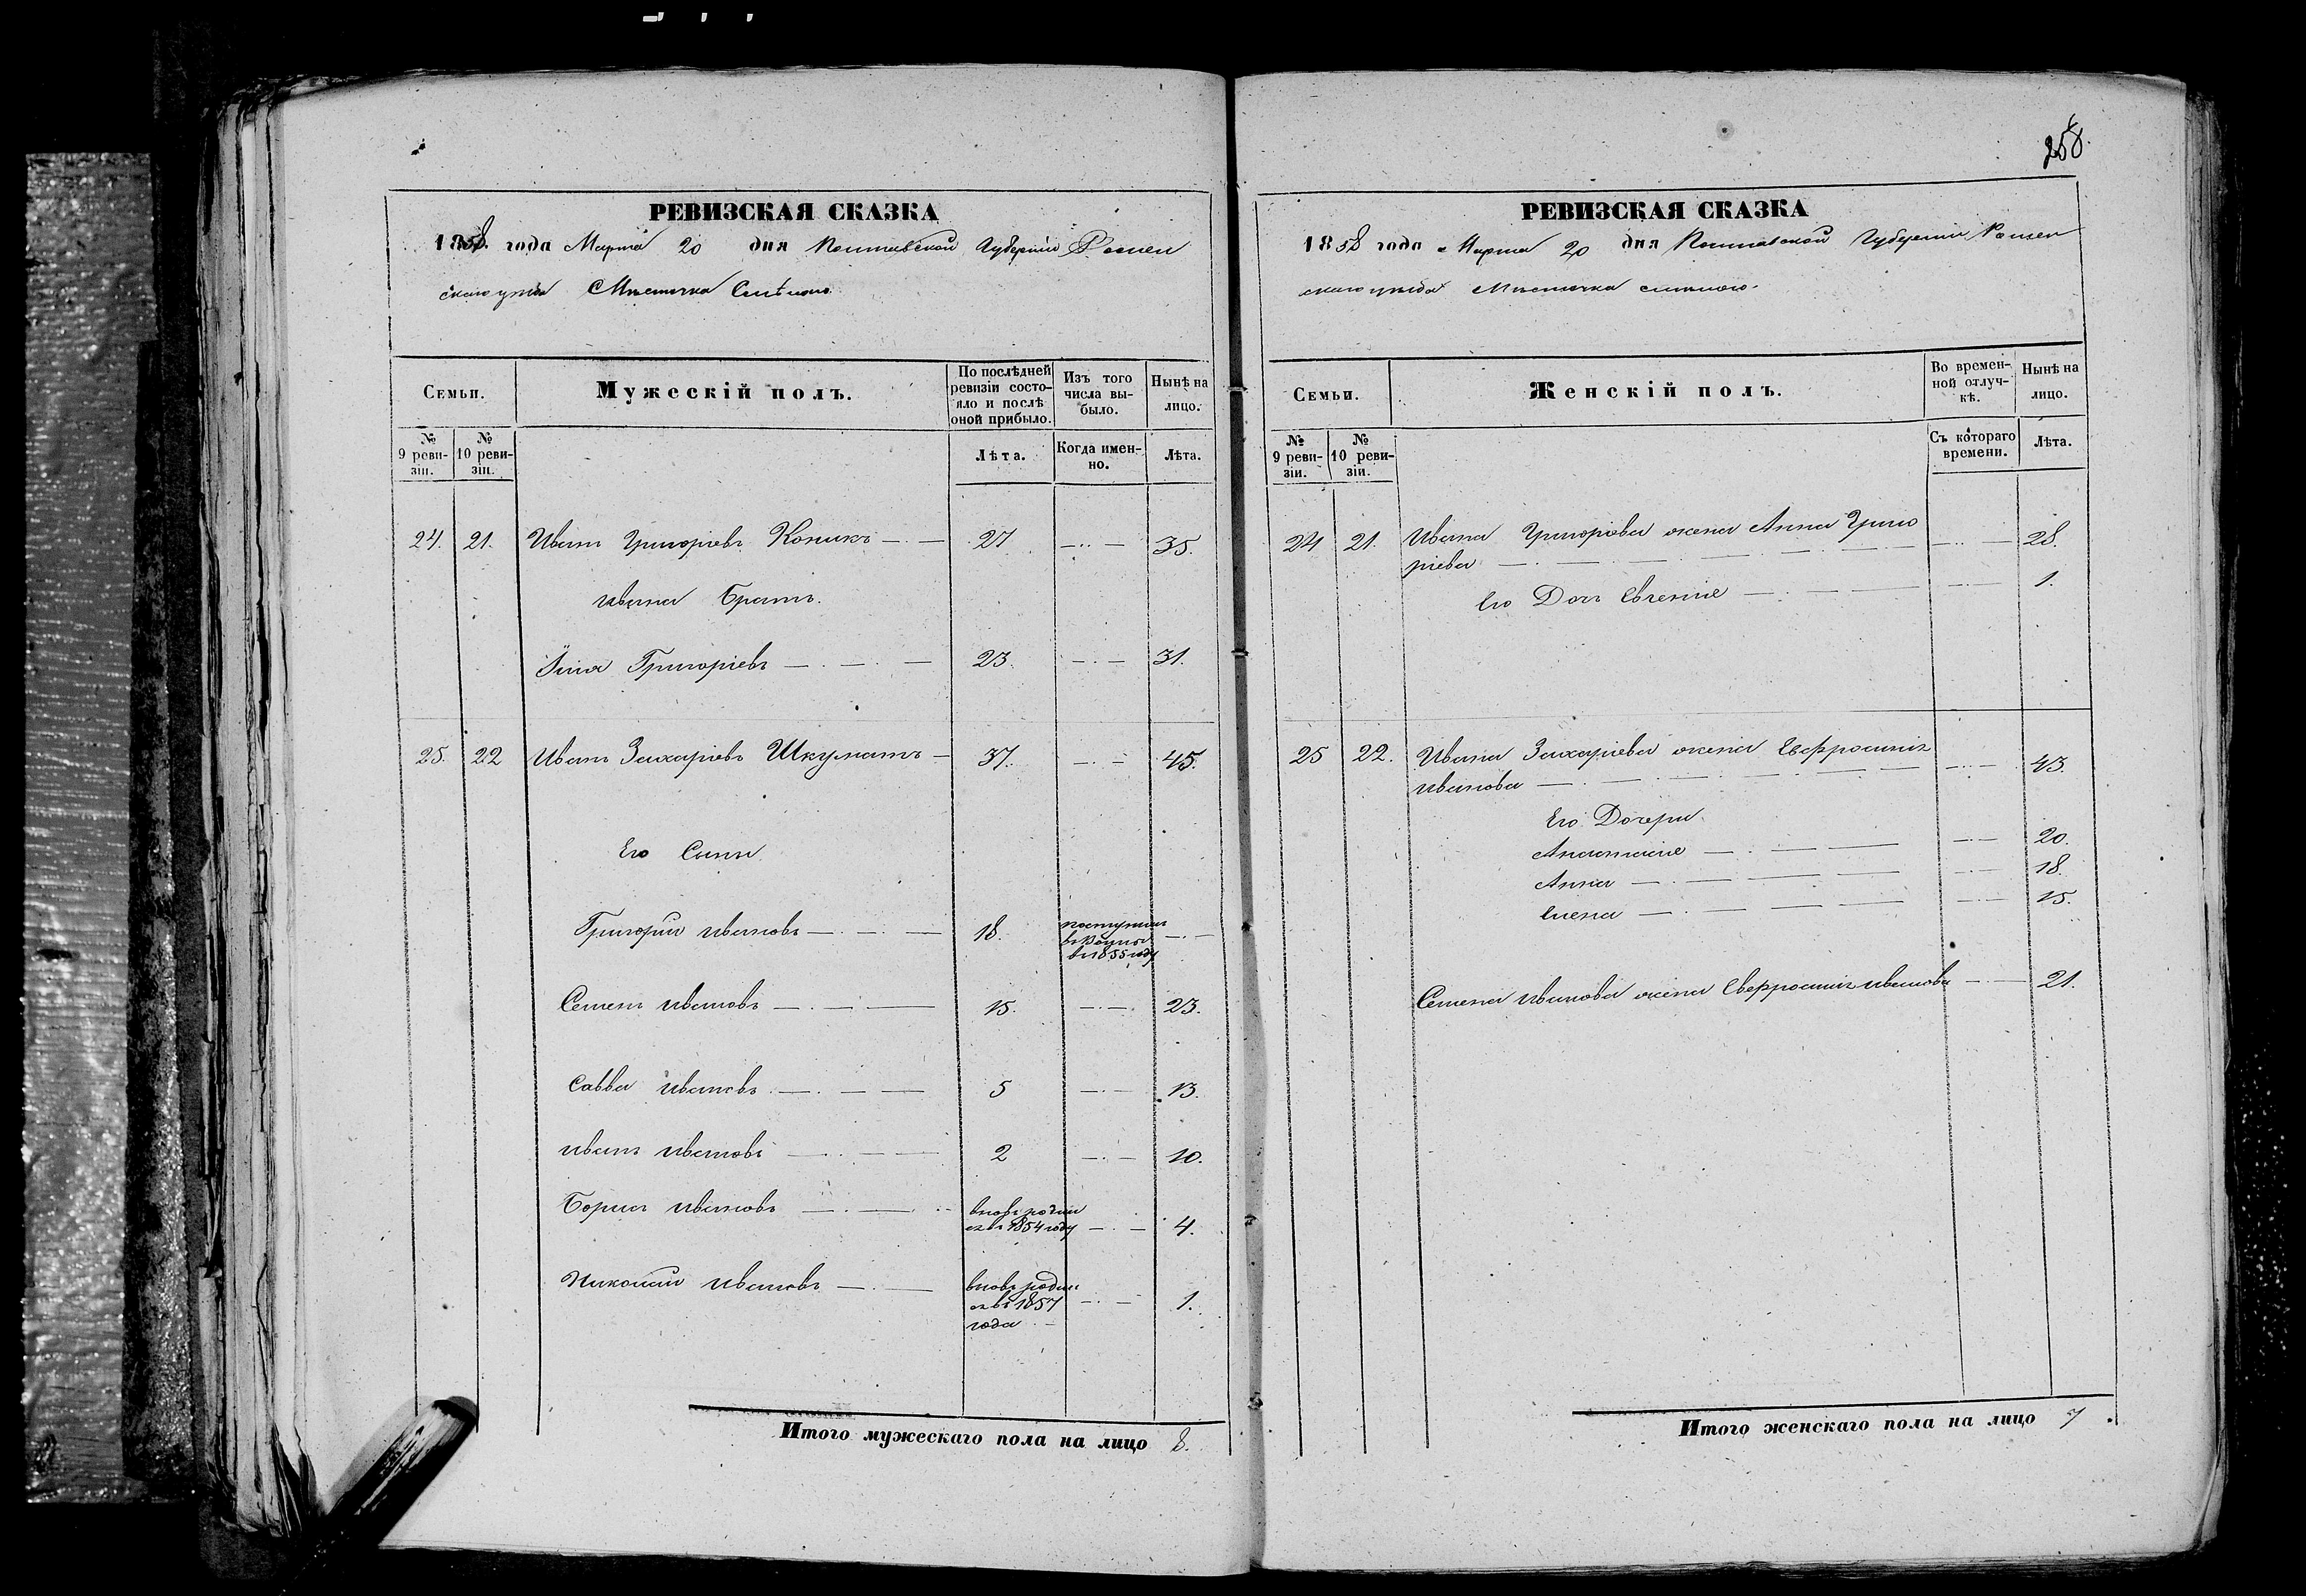 258.
РЕВИЗСКАЯ СКАЗКА
1858. года Марта 20 дня Полтавской Губерніи Ромен
скаго уѣзда Мѣстечка Смѣлого
Семьи.
Мужескій полъ.
По послѣдней ревизіи состояло и послѣ оной прибыло.
Изъ того числа выбыло.
Нынѣ на лицо.
№ 9 ревизіи.
№ 10 ревизіи.
Лѣта.
Когда именно.
Лѣта.
24. 21. Иванъ Григоріевъ Коникъ 27 35.
Ивана Братъ.
Илія Григоріевъ 23. 31.
25. 22 Иванъ Захаріевъ Шкуматъ 37. 45.
Его Сыны
Григорий Ивановъ 18.
в 1855 году
Семенъ Ивановъ 15. 23.
Савва Ивановъ 5 13.
Иванъ Ивановъ 2 10.
Борисъ Ивановъ вновь родил
ся въ 1854 году 4.
Николай Ивановъ вновь родил
ся въ 1857 1.
года
Итого мужескаго пола на лицо 8.
РЕВИЗСКАЯ СКАЗКА
1858 года Марта 20 дня Полтавской Губерніи Ромен
скаго уѣзда Мѣстечка Смѣлого
Семьи.
Женскій полъ.
Во временной отлучкѣ.
Нынѣ на лицо.
№ 9 ревизіи.
№ 10 ревизіи.
Съ котораго времени.
Лѣта.
24 21. Ивана Григоріева жена Анна Григо
ріева 28.
Его Дочь Евгенія 1.
25 22. Ивана Захаріева жена Евфросинія
Иванова 43.
Его Дочери
Анастасія 20.
Анна 18.
Елена 15.
Семена Иванова жена Евфросинія Иванова 21.
Итого женскаго пола на лицо 7